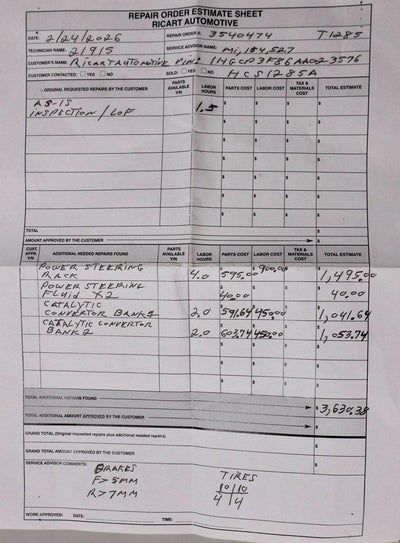 REPAIR ORDER ESTIMATE SHEET
RICART AUTOMOTIVE
DATE: 2/24/2026 REPAIR ORDER #: 3540474 T1285
TECHNICIAN NAME: 21915 SERVICE ADVISOR NAME: Mi, 184,527
CUSTOMER'S NAME: Ricart Automotive VIN: 1HGCP3F86AA023576
CUSTOMER CONTACTED: YES NO SOLD: YES NO HCS1285A
ORIGINAL REQUESTED REPAIRS BY THE CUSTOMER PARTS AVAILABLE Y/N LABOR HOURS PARTS COST LABOR COST TAX & MATERIALS COST TOTAL ESTIMATE
AS-IS
INSPECTION / LOF 1.5
TOTAL
AMOUNT APPROVED BY THE CUSTOMER
CUST. APPR. Y/N ADDITIONAL NEEDED REPAIRS FOUND PARTS AVAILABLE Y/N LABOR HOURS PARTS COST LABOR COST TAX & MATERIALS COST TOTAL ESTIMATE
POWER STEERING
RACK 4.0 595.00 900.00 1,495.00
POWER STEERING
FLUID X2 40.00 40.00
CATALYTIC
CONVERTOR BANK 1 2.0 591.64 450.00 1,041.64
CATALYTIC CONVERTOR
BANK 2 2.0 603.74 450.00 1,053.74
TOTAL ADDITIONAL REPAIRS FOUND $ 3,630.38
TOTAL ADDITIONAL AMOUNT APPROVED BY THE CUSTOMER
GRAND TOTAL (Original requested repairs plus additional needed repairs)
GRAND TOTAL AMOUNT APPROVED BY THE CUSTOMER
SERVICE ADVISOR COMMENTS: BRAKES TIRES
F> 5MM 10 | 10
R> 7MM 4 | 4
WORK APPROVED: DATE: TIME: